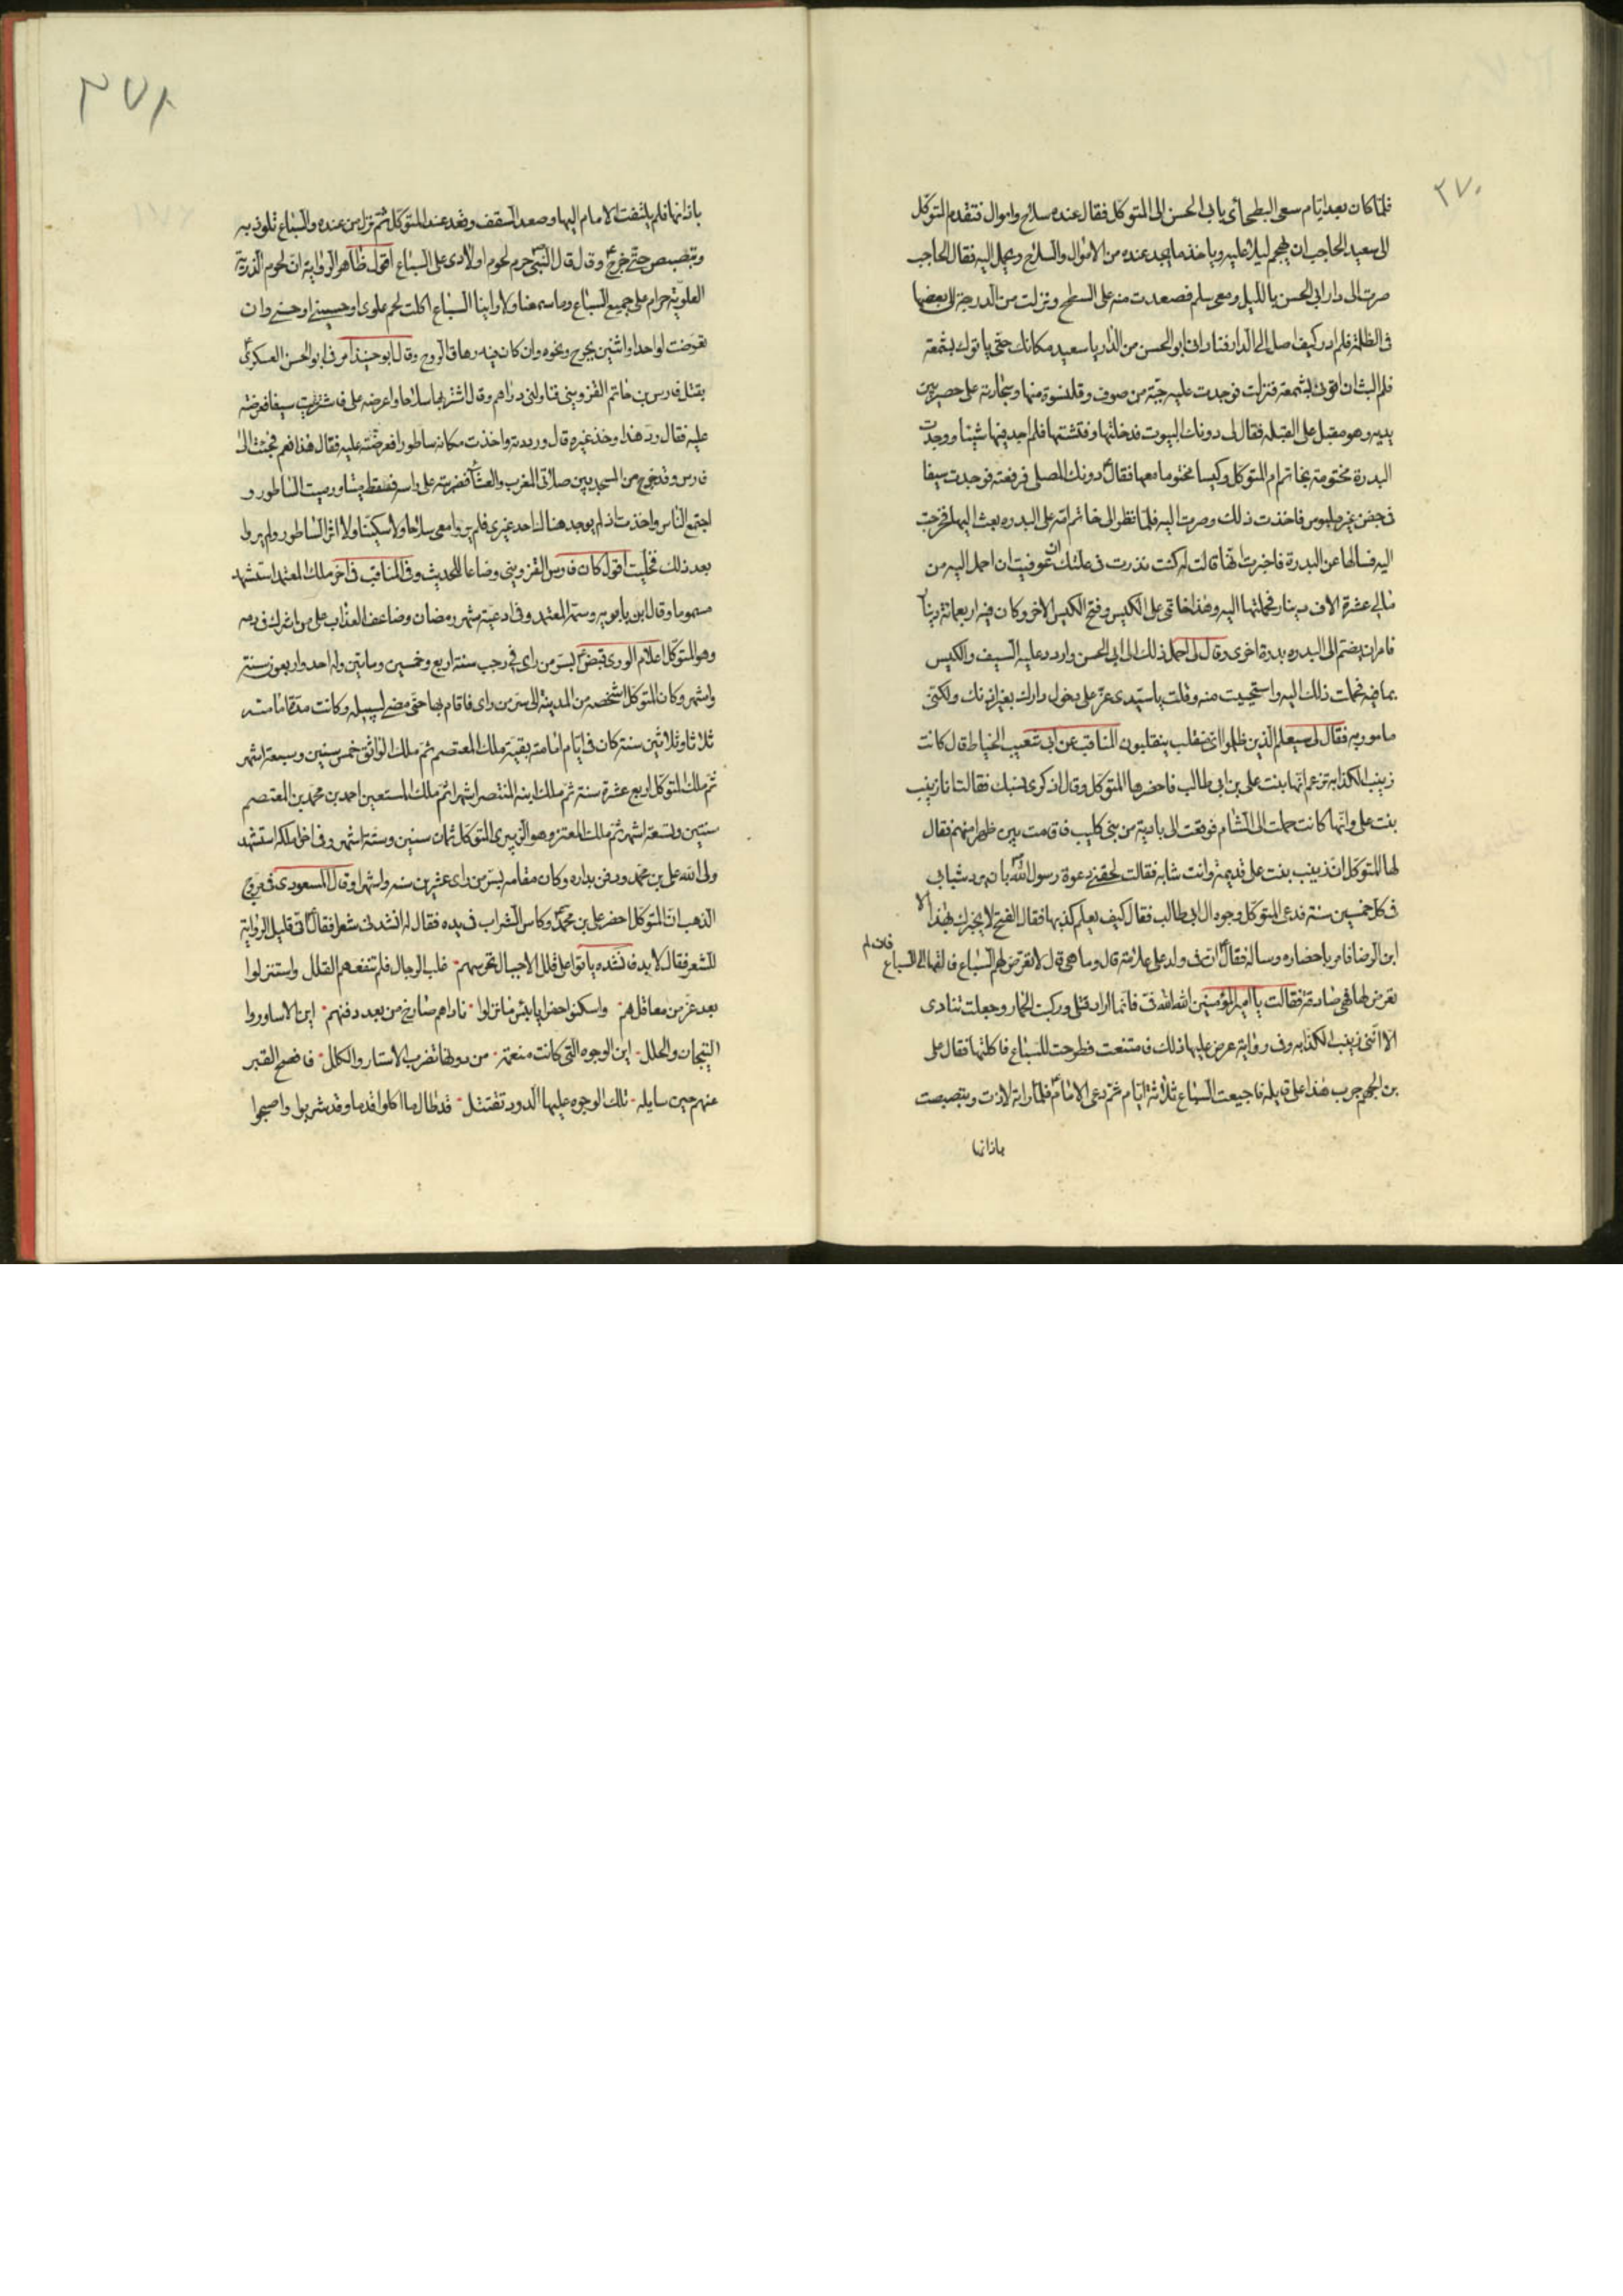 ٢٧٠
فلما كان بعد ايام سعى البطحائى بابى الحسن الى المتوكل فقال عنده سلاح واموال فتقدم المتوكل
الى سعيد الحاجب ان يهجم ليلا عليه وياخذ ما يجد عنده من الاموال والسلاح ويحمل اليه فقال الحاجب
صرت الى دار ابى الحسن بالليل ومعى سلم فصعدت منه على السطح ونزلت من الدرجة الى بعضها
فى الظلمة فلم ادر كيف اصل الى الدار فنادانى ابو الحسن من الدار يا سعيد مكانك حتى ياتوك بشمعة
فلم البث ان اتونى بشمعة فنزلت فوجدت عليه جبة من صوف وقلنسوة منها وسجادته على حصير بين
يديه وهو مقبل على القبله فقال لى دونك البيوت فدخلتها وفتشتها فلم اجد فيها شيئا ووجدت
البدرة مختومة بخاتم ام المتوكل وكيسا مختوما معها فقال دونك المصلى فرفعته فوجدت سيفا
فى جفن غير ملبوس فاخذت ذلك وصرت اليه فلما نظر الى خاتم امه على البدره بعث اليها فخرجت
اليه فسالها عن البدرة فاخبرت انها قالت له كنت نذرت فى علتك ان عوفيت ان احمل اليه من
مالى عشرة الاف دينار فحملتها اليه وهذا خاتمى على الكيس وفتح الكيس الاخر وكان فيه اربعمائة دينار
فامر ان يضم الى البدره بدرة اخرى وقال لى احمل ذلك الى ابى الحسن واردد عليه السيف والكيس
بما فيه فحملت ذلك اليه واستحييت منه وقلت يا سيدى عز على دخول دارك بغير اذنك ولكنى
مامور به فقال لى سيعلم الذين ظلموا اى منقلب ينقلبون المناقب عن ابى شعيب الخياط قال كانت
زينب الكذابه تزعم انها بنت على بن ابى طالب فاحضرها المتوكل وقال اذكرى نسبك فقالت انا زينب
بنت على وانها كانت حملت الى الشام فوقعت الى بادية من بنى كليب فاقامت بين ظهرانيهم فقال
لها المتوكل ان زينب بنت على قديمة وانت شابه فقالت لحقتنى دعوة رسول الله بان يرد شبابى
فى كل خمسين سنة فدعى المتوكل وجوه ال ابى طالب فقال كيف يعلم كذبها فقال الفتح لا يخبرك بهذا الا
ابن الرضا فامر باحضاره وساله فقال ان فى ولد على علامة قال وما هى قال لا تعرض لهم السباع فالقها الى السباع
فان لم
تعرض لها فهى صادقة فقالت يا امير المؤمنين الله الله فى فانما اراد قتلى وركبت الحمار وجعلت تنادى
الا اننى زينب الكذابه وفى رواية عرض عليها ذلك فامتنعت فطرحت للسباع فاكلتها فقال على
بن الجهم جرب هذا على قايله فاجيعت السباع ثلاثة ايام ثم دعى الامام فلما راته لاذت وتبصبصت
باذانها
٣٧١
باذانها فلم يلتفت الامام اليها وصعد السقف وقعد عند المتوكل ثم نزل من عنده والسباع تلوذ به
وتبصبص حتى خرج وقال قال النبى حرم لحوم اولادى على السباع اقول ظاهر الرواية ان لحوم الذرية
العلوية حرام على جميع السباع وما سمعنا ولا راينا السباع اكلت لحم علوى او حسينى او حسنى وان
تعرضت لواحد او اثنين بجرح ونحوه وان كان فيه زهاق الروح وقال ابو جنيد امرنى ابو الحسن العسكرى
بقتل فارس بن حاتم القزوينى فناولنى دراهم وقال اشتر بها سلاحا واعرضه على فاشتريت سيفا فعرضته
عليه فقال رد هذا وخذ غيره قال ورددته واخذت مكانه ساطورا فعرضته عليه فقال هذا نعم فجئت الى
فارس وقد خرج من المسجد بين صلاتى المغرب والعشاء فضربته على راسه فسقط ميتا ورميت الساطور و
اجتمع الناس واخذت اذ لم يوجد هناك احد غيرى فلم يروا معى سلاحا ولا سكينا ولا اثر الساطور ولم يروا
بعد ذلك فخليت اقول كان فارس القزوينى وضاعا للحديث وفى المناقب فى اخر ملك المعتمد استشهد
مسموما وقال ابن بابويه وسمه المعتمد وفى ادعية شهر رمضان وضاعف العذاب على من شرك فى دمه
وهو المتوكل اعلام الورى قبض بسر من راى فى رجب سنة اربع وخمسين ومايتين وله احد واربعون سنة
واشهر وكان المتوكل اشخصه من المدينة الى سر من راى فاقام بها حتى مضى لسبيله وكانت مدة امامته
ثلاثا وثلاثين سنة كان فى ايام امامته بقية ملك المعتصم ثم ملك الواثق خمس سنين وسبعة اشهر
ثم ملك المتوكل اربع عشرة سنة ثم ملك ابنه المنتصر اشهرا ثم ملك المستعين احمد بن محمد بن المعتصم
سنتين وتسعة اشهر ثم ملك المعتز وهو الزبير بن المتوكل ثمان سنين وستة اشهر وفى اخر ملكه استشهد
ولى الله على بن محمد ودفن بداره وكان مقامه بسر من راى عشرين سنه واشهرا وقال المسعودى فى مروج
الذهب ان المتوكل احضر على بن محمد وكاس الشراب فى يده فقال له انشدنى شعرا فقال انى قليل الرواية
للشعر فقال لا بد فانشده باتوا على قلل الاجبال تحرسهم غلب الرجال فلم تنفعهم القلل واستنزلوا
بعد عز من معاقلهم واسكنوا حفرا يا بئس ما نزلوا ناداهم صارخ من بعد دفنهم اين الاساور وا
التيجان والحلل اين الوجوه التى كانت منعمة من دونها تضرب الاستار والكلل فافصح القبر
عنهم حين سايله تلك الوجوه عليها الدود تقتتل قد طال ما اكلوا قدما وقد شربوا واصبحوا